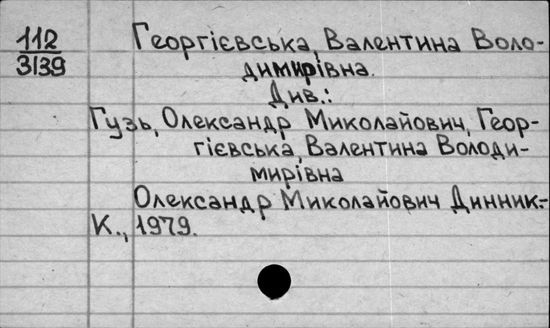 112
3139
Георгієвська, Валентина Воло-
димирівна.
Див.:
Гузь, Олександр Миколайович, Геор-
гієвська, Валентина Володи-
мирівна
Олександр Миколайович Динник.-
К., 1979.